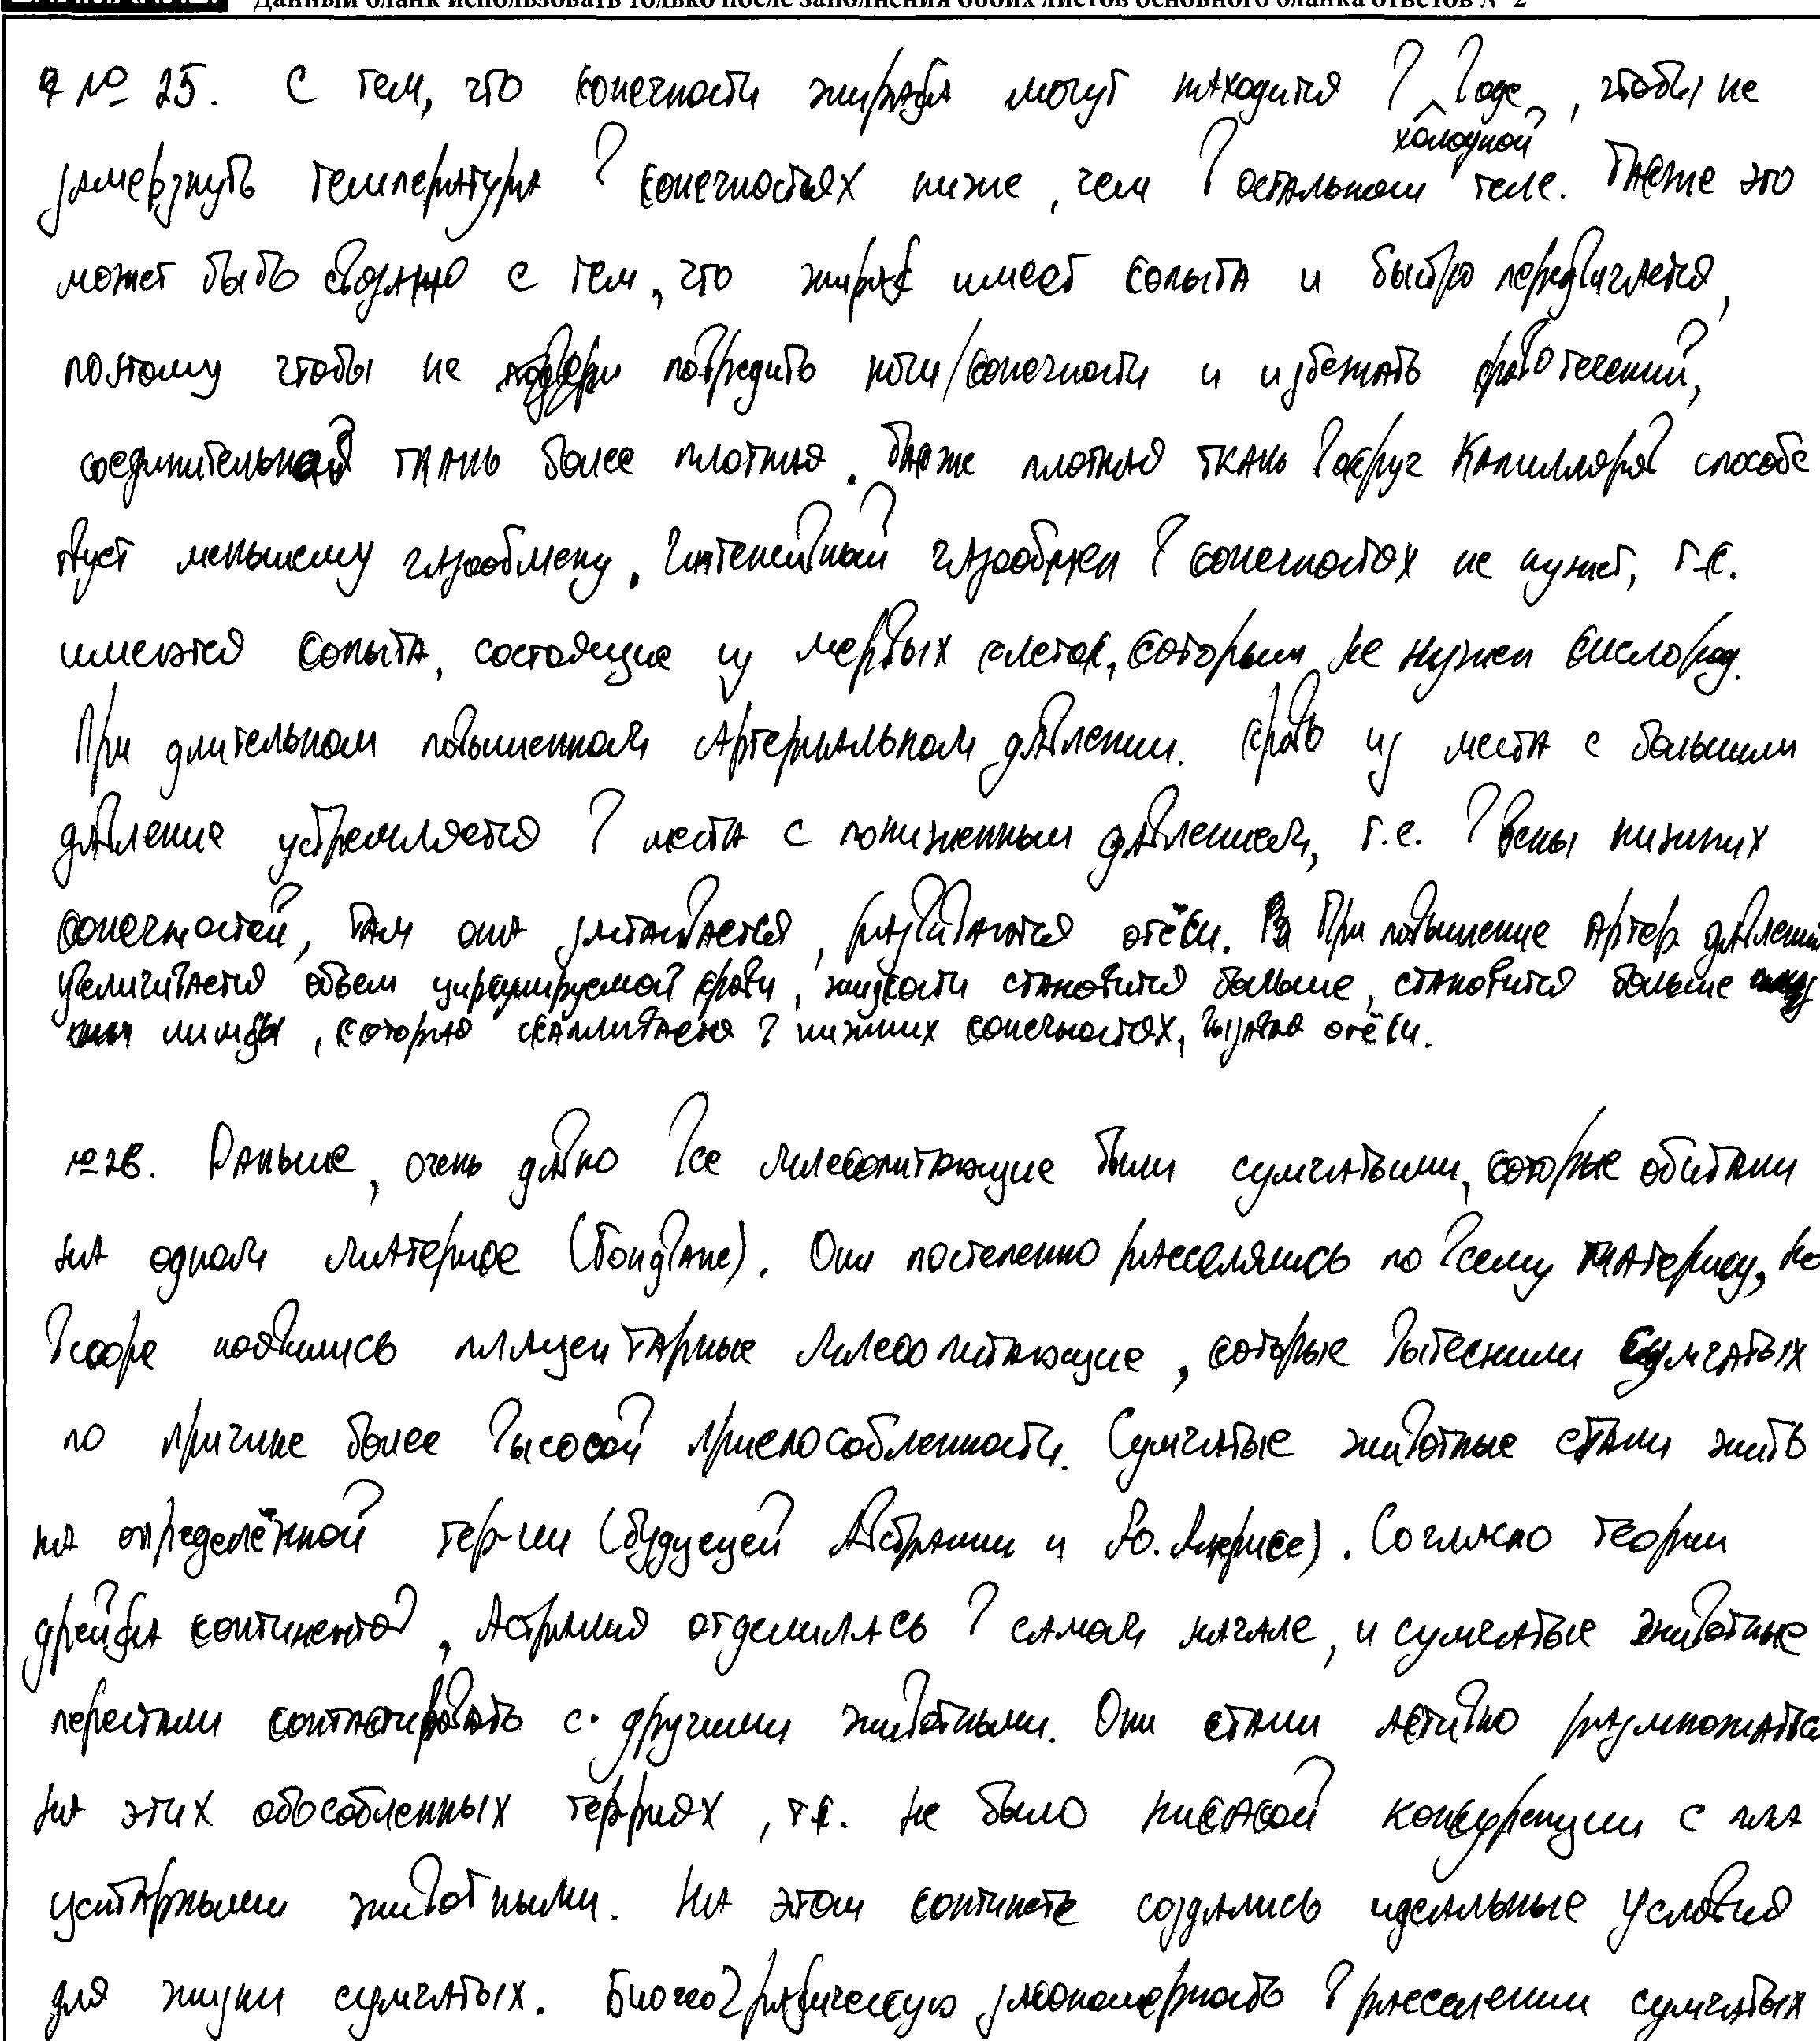 Данный бланк использовать только после заполнения обоих листов основного бланка ответов № 2
№ 25. С тем, что конечности жирафа могут находится в воде, чтобы не
холодной
замерзнуть температура в конечностях ниже, чем в остальном теле. Также это
может быть связано с тем, что жираф имеет копыта и быстро передвигается,
поэтому чтобы не повредить ноги/конечности и избежать кровотечений,
соединительной ткань более плотная. Также плотная ткань вокруг капилляров способс
твует меньшему газообмену. Интенсивный газообмен в конечностях не нужен, т.к.
имеются копыта, состоящие из мертвых клеток, которым не нужен кислород.
При длительном повышенном артериальном давлении. кровь из места с большим
давление устремляется в места с пониженным давлением, т.е. в вены нижних
конечностей, там она застаивается, развиваются отёки. При повышение артер. давления
увеличивается объем циркулируемой крови, жидкости становится больше, становится больше
лимфы, которая скапливается в нижних конечностях, вызывая отёки.
№ 26. Раньше, очень давно все млекопитающие были сумчатыми, которые обитали
на одном материке (Гондване). Они постепенно расселялись по всему материку, но
вскоре появились плацентарные млекопитающие, которые вытеснили сумчатых
по причине более высокой приспособленности. Сумчатые животные стали жить
на определённой тер-ии (будущей Австралии и Ю. Америке). Согласно теории
дрейфа континентов, Астралия отделилась в самом начале, и сумчатые животные
перестали контактировать с другими животными. Они стали активно размножаться
на этих обособленных террях, т.к. не было никакой конкуренции с пла
центарными животными. На этом континте создались идеальные условия
для жизни сумчатых. Биогеографическую закономерность в расселении сумчатых